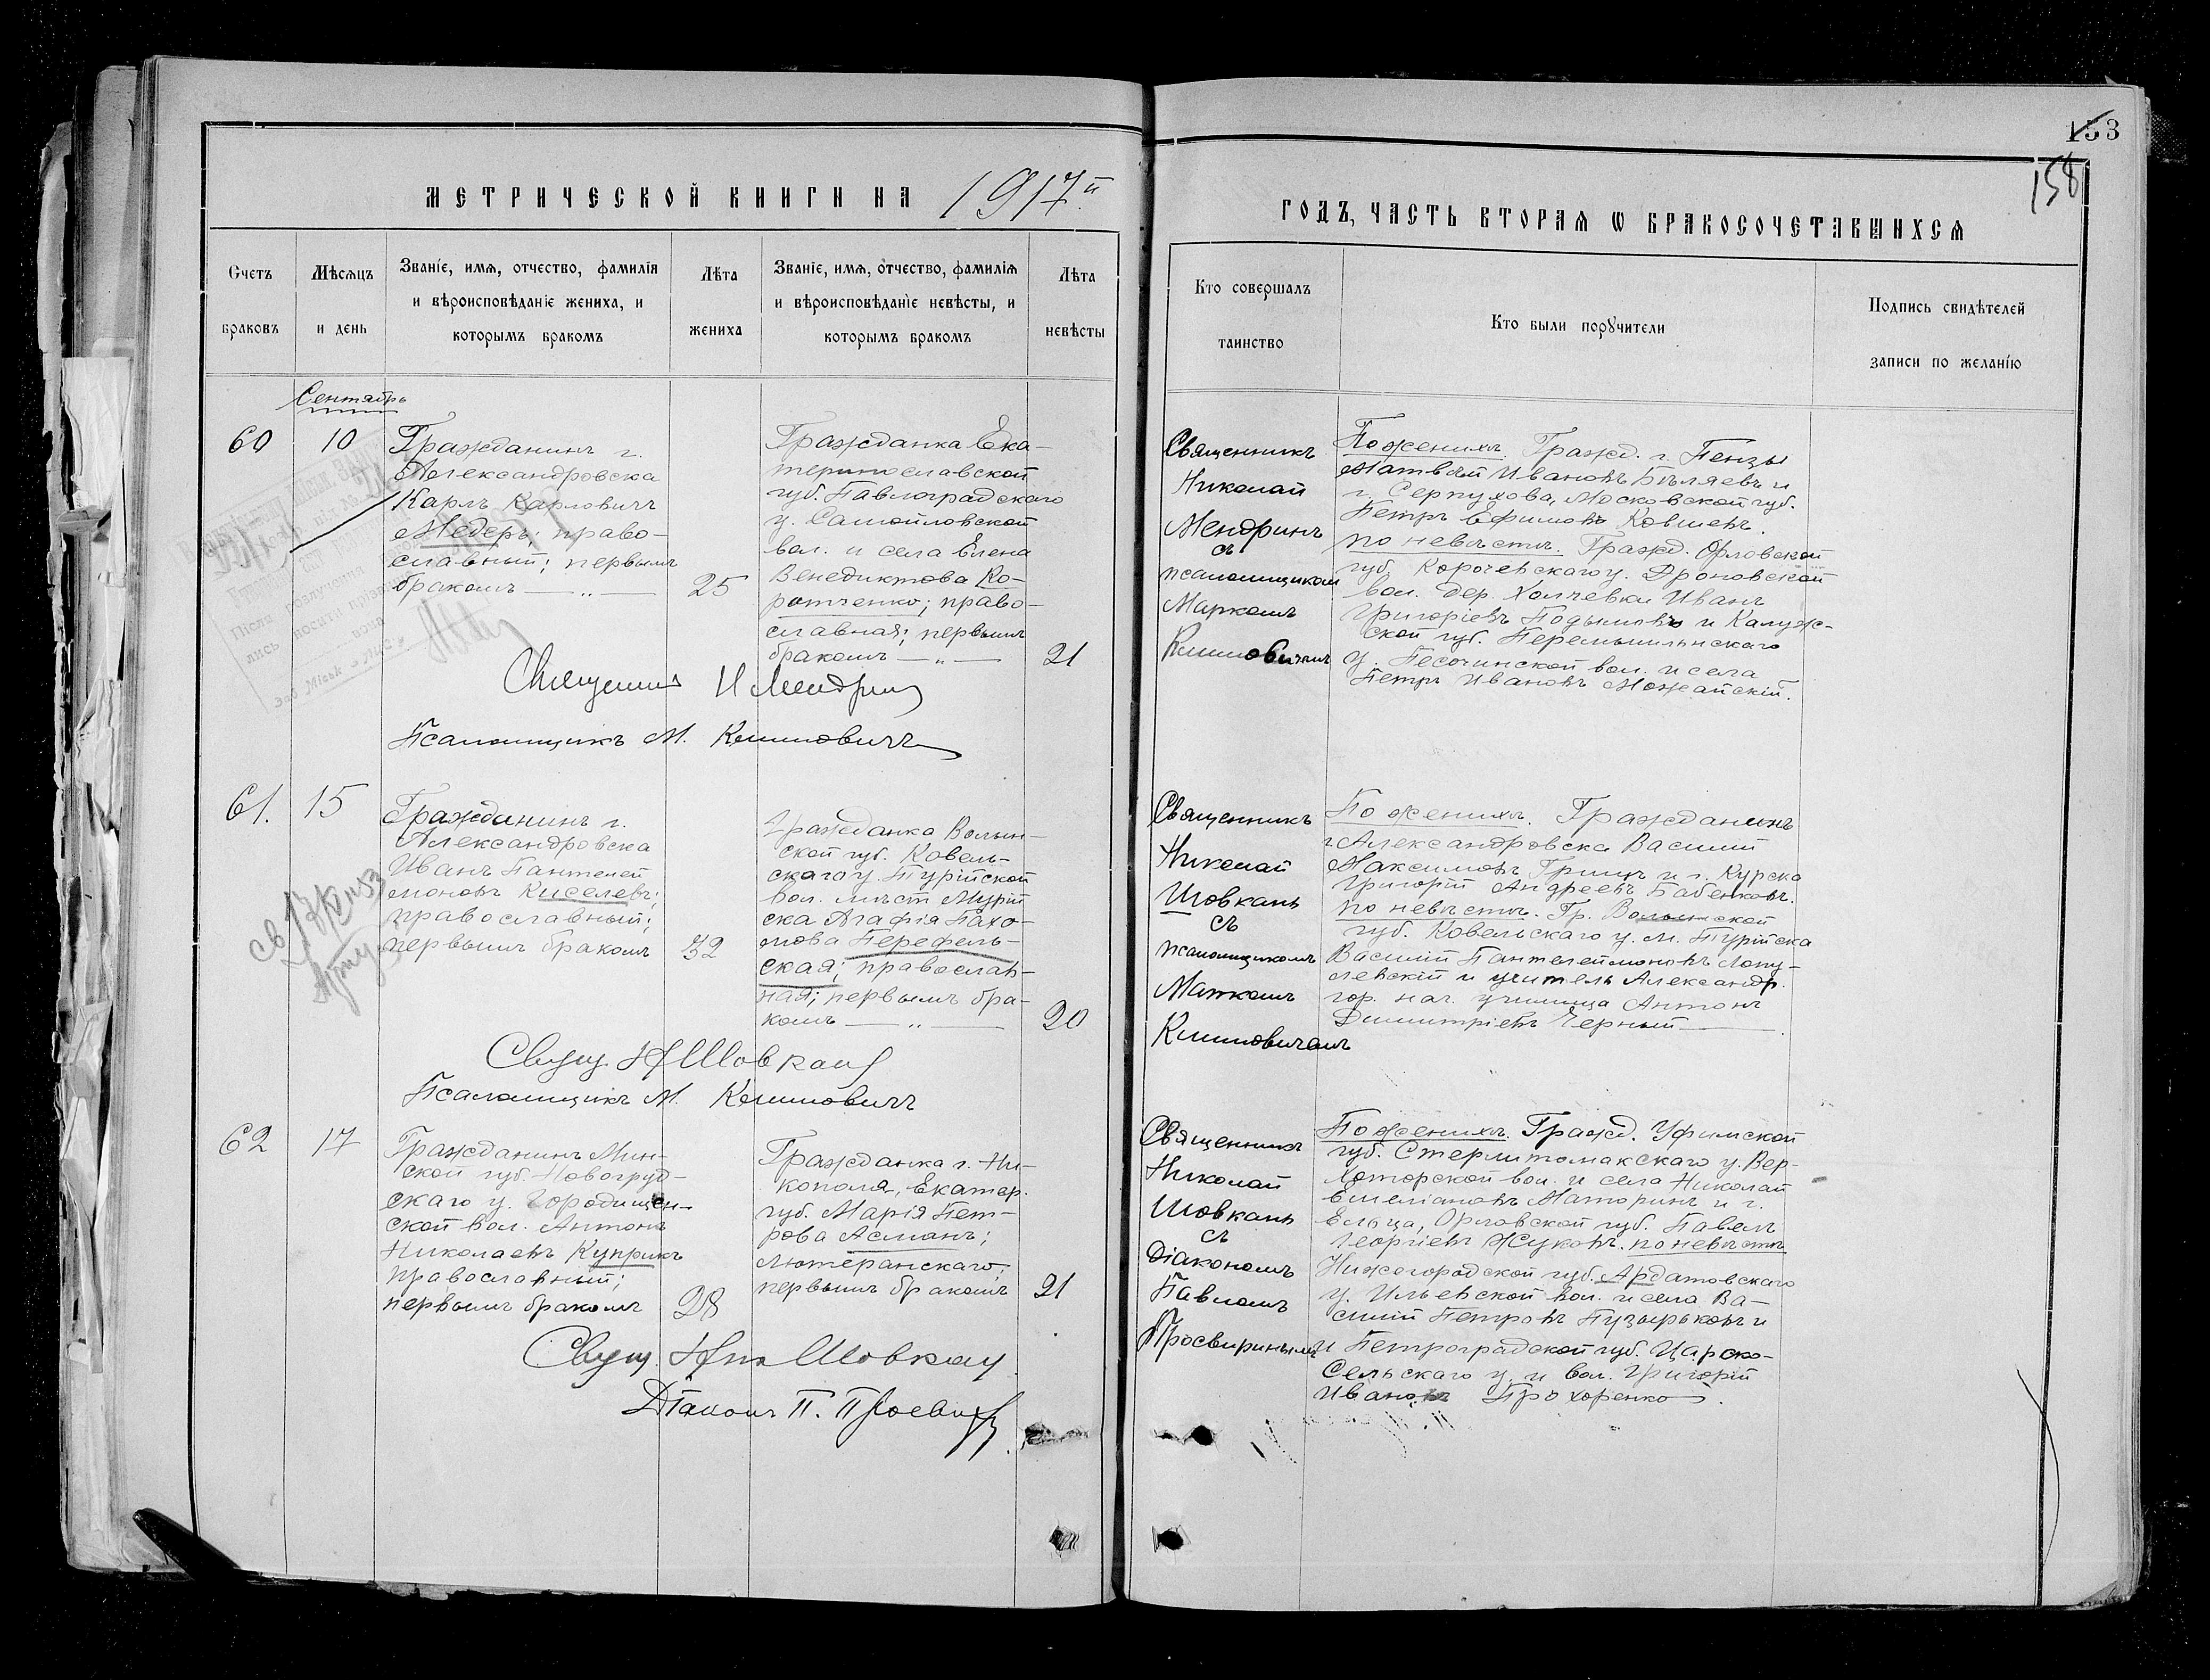 153
158
МЕТРИЧЕСКОЙ КНИГИ НА 1917й
ГОДЪ, ЧАСТЬ ВТОРАЯ Ѡ БРАКОСОЧЕТАВШИХСЯ
Счетъ
браковъ
Мѣсяцъ
и день
Званіе, имя, отчество, фамилія
и вѣроисповѣданіе жениха, и
которымъ бракомъ
Лѣта
жениха
Званіе, имя, отчество, фамилія
и вѣроисповѣданіе невѣсты, и
которымъ бракомъ
Лѣта
невѣсты
Кто совершалъ
таинство
Кто были поручители
Подпись свидѣтелей
записи по желанію
Сентябрь
60
10
Гражданинъ г.
Александровска
Карлъ Карловичъ
Медеръ; право-
славный; первымъ
бракомъ — „ —
25
Гражданка Ека-
теринославской
губ. Павлоградскаго
у. Самойловской
вол. и села Елена
Венедиктова Ко-
ротченко; право-
славная; первымъ
бракомъ — „ —
21
Священникъ
Николай
Мендринъ
съ
псаломщикомъ
Маркомъ
Климовичемъ
По женихѣ. Гражд. г. Пензы
Матвѣй Ивановъ Бѣляевъ и
г. Серпухова, Московской губ.
Петръ Ефимовъ Ковшевъ.
по невѣстѣ. Гражд. Орловской
губ. Корочевскаго у. Дроновской
вол. дер. Холчевки Иванъ
Григорьевъ Подымовъ и Калуж-
ской губ. Перемышльскаго
у. Песочинской вол. и села
Петръ Ивановъ Можайскій.
Священникъ Н Мендринъ
Псаломщикъ М. Климовичъ
61.
15
Гражданинъ г.
Александровска
Иванъ Пантелей
моновъ Киселевъ;
православный;
первымъ бракомъ
32
гражданка Волын-
ской губ. Ковель-
скаго у. Турійской
вол. мѣст Турій
ска Агафія Пахо-
мова Перефель-
ская; православ-
ная; первымъ бра-
комъ — „ —
20
Священникъ
Николай
Шовкань
съ
псаломщикомъ
Маркомъ
Климовичемъ
По женихѣ. Гражданинъ
г. Александровска Василій
Максимовъ Грицъ и г. Курска
Григорій Андреевъ Бабенковъ.
по невѣстѣ. Гр. Волынской
губ. Ковельскаго у. м. Турійска
Василій Пантелеймоновъ Лопу-
левскій и учитель Александр.
гор. нач. училища Антонъ
Димитріевъ Черный —
Свящ. Н Шовкань
Псаломщикъ М. Климовичъ
62
17
Гражданинъ Мин-
ской губ. Новогруд-
скаго у. Городищен-
ской вол. Антонъ
Николаевъ Куприкъ
православный;
первымъ бракомъ
28
Гражданка г. Ни-
кополя, Екатер.
губ. Марія Пет-
рова Асманъ;
лютеранскаго;
первымъ бракомъ
21
Священникъ
Николай
Шовкань
съ
Діакономъ
Павломъ
Просвиринымъ
По женихѣ. Гражд. Уфимской
губ. Стерлитамакскаго у. Вер-
хоторской вол. и села Николай
Емеліановъ Маторинъ и г.
Ельца, Орловской губ. Павелъ
Георгіевъ Жуковъ. по невѣстѣ
Нижегородской губ. Ардатовскаго
у. Ильевской вол. и села Ва-
силій Петровъ Пузырьковъ и
и Петроградской губ. Царско-
Сельскаго у. и вол. Григорій
Ивановъ Прохоренко.
Свящ. Ник Шовкань
Діаконъ П. Просвиринъ